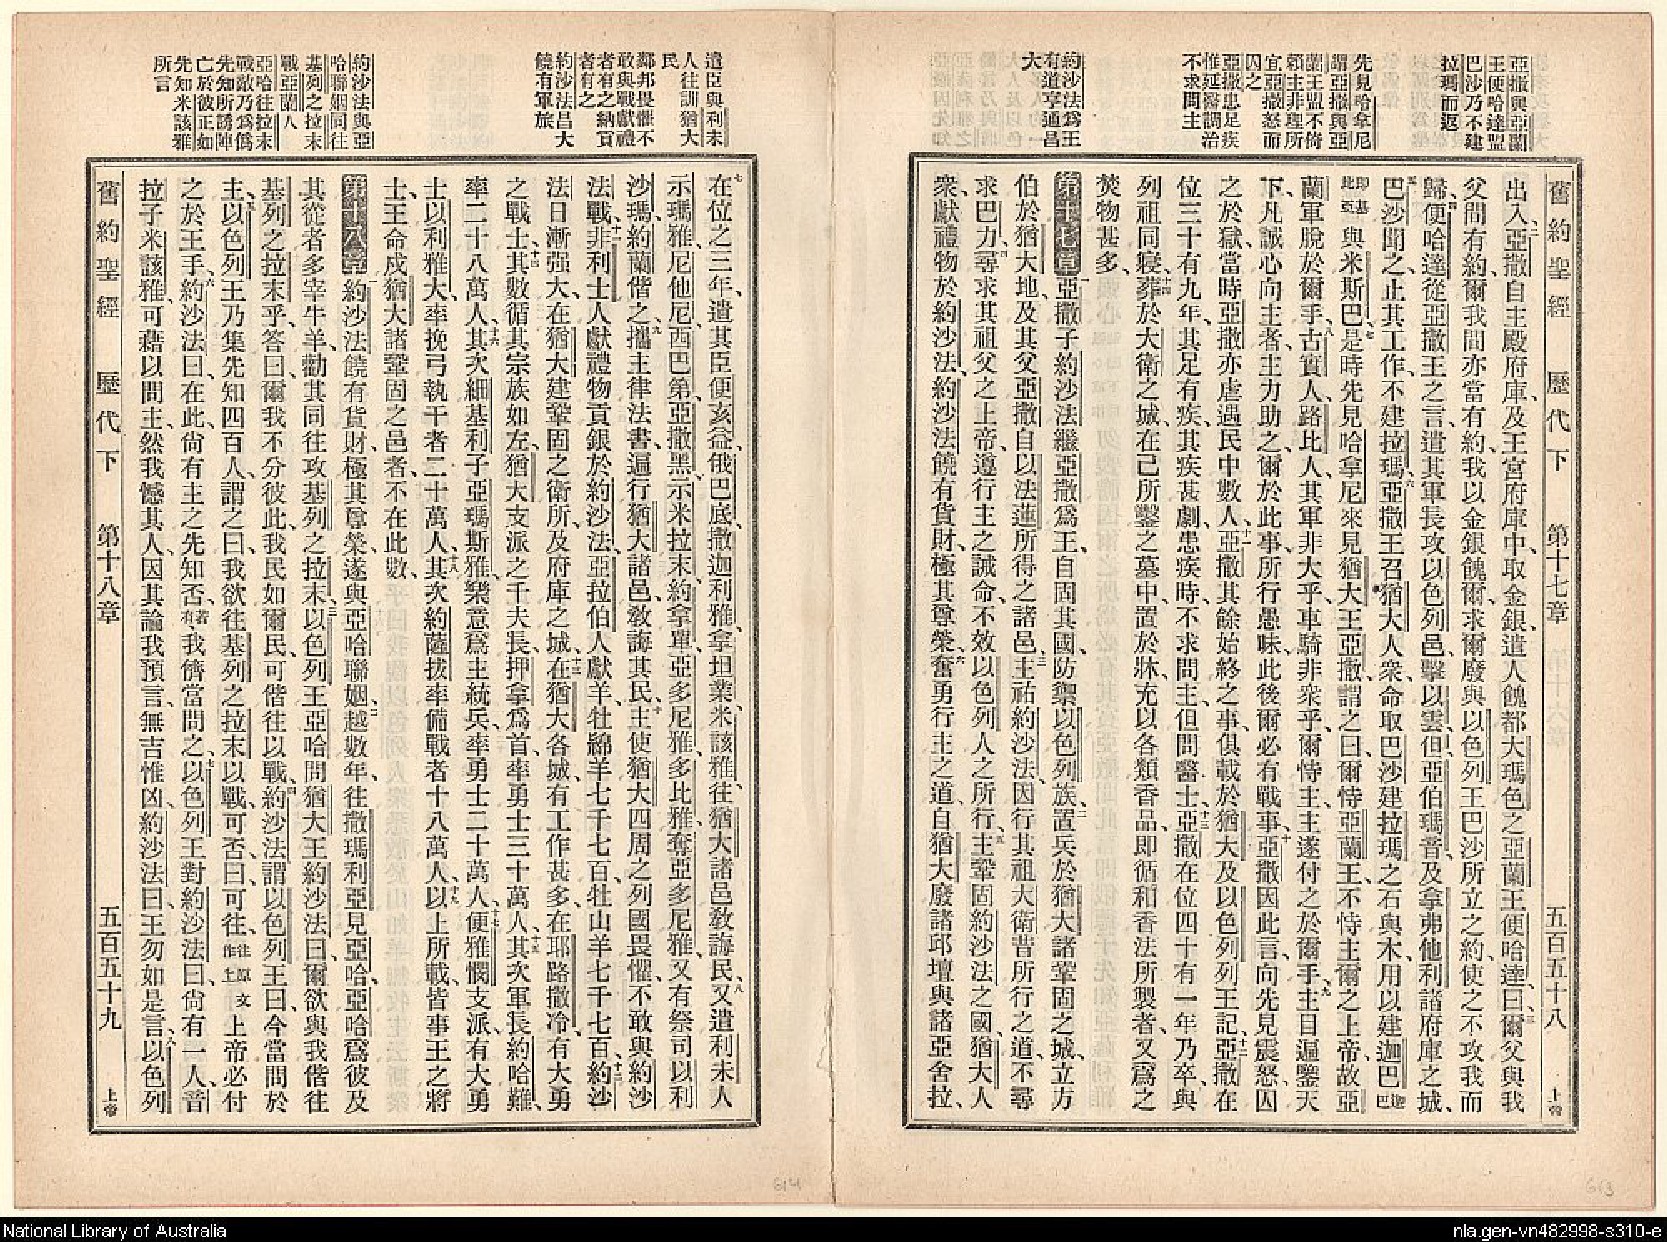 舊約聖經 歷代下 第十七章 五百五十八 上帝
亞撒與亞蘭
王便哈達盟
巴沙乃不建
拉瑪而返
先見哈拿尼
謂亞撒與亞
蘭王盟不倚
賴主非理所
宜亞撒怒而
囚之
亞撒患足疾
惟延醫調治
不求問主
約沙法爲王
有道享通昌
大
出入亞撒自主殿府庫及王宮府庫中取金銀遣人餽都大瑪色之亞蘭王便哈達曰爾父與我
父間有約爾我間亦當有約我以金銀餽爾求爾廢與以色列王巴沙所立之約使之不攻我而
歸便哈達從亞撒王之言遣其軍長攻以色列邑擊以雲但亞伯瑪音及拿弗他利諸府庫之城
巴沙聞之止其工作不建拉瑪亞撒王召猶大人衆命取巴沙建拉瑪之石與木用以建迦巴迦巴
即基比亞與米斯巴是時先見哈拿尼來見猶大王亞撒謂之曰爾恃亞蘭王不恃主爾之上帝故亞
蘭軍脫於爾手古實人路比人其軍非大乎車騎非衆乎爾恃主主遂付之於爾手主目遍鑒天
下凡誠心向主者主力助之爾於此事所行愚昧此後爾必有戰事亞撒因此言向先見震怒囚
之於獄當時亞撒亦虐遇民中數人亞撒其餘始終之事俱載於猶大及以色列列王記亞撒在
位三十有九年其足有疾其疾甚劇患疾時不求問主但問醫士亞撒在位四十有一年乃卒與
列祖同寢葬於大衛之城在己所鑿之墓中置於牀充以各類香品即循和香法所製者又爲之
焚物甚多
第十七章亞撒子約沙法繼亞撒爲王自固其國防禦以色列族置兵於猶大諸鞏固之城立方
伯於猶大地及其父亞撒自以法蓮所得之諸邑主祐約沙法因行其祖大衛昔所行之道不尋
求巴力尋求其祖父之上帝遵行主之誡命不效以色列人之所行主鞏固約沙法之國猶大人
衆獻禮物於約沙法約沙法饒有貨財極其尊榮奮勇行主之道自猶大廢諸邱壇與諸亞舍拉
遣臣與利未
人往訓猶大
民
鄰邦畏懼不
敢與戰獻禮
者有之納貢
者有之
約沙法昌大
饒有軍旅
約沙法與亞
哈聯姻同往
基列之拉末
戰亞蘭人
亞哈往拉末
戰敵乃爲僞
先知所誘陣
亡於彼正如
先知米該雅
所言
在位之三年遣其臣便亥益俄巴底撒迦利雅拿坦業米該雅往猶大諸邑敎誨民又遣利未人
示瑪雅尼他尼西巴第亞撒黑示米拉末約拿單亞多尼雅多比雅奪亞多尼雅又有祭司以利
沙瑪約蘭偕之攜主律法書遍行猶大諸邑敎誨其民主使猶大四周之列國畏懼不敢與約沙
法戰非利士人獻禮物貢銀於約沙法亞拉伯人獻羊牡綿羊七千七百牡山羊七千七百約沙
法日漸强大在猶大建鞏固之衛所及府庫之城在猶大各城有工作甚多在耶路撒冷有大勇
之戰士其數循其宗族如左猶大支派之千夫長押拿爲首率勇士三十萬人其次軍長約哈難
率二十八萬人其次細基利子亞瑪斯雅樂意爲主統兵率勇士二十萬人便雅憫支派有大勇
士以利雅大率挽弓執干者二十萬人其次約薩拔率備戰者十八萬人以上所載皆事王之將
士王命戍猶大諸鞏固之邑者不在此數
第十八章約沙法饒有貨財極其尊榮遂與亞哈聯姻越數年往撒瑪利亞見亞哈亞哈爲彼及
其從者多宰牛羊勸其同往攻基列之拉末以色列王亞哈問猶大王約沙法曰爾欲與我偕往
基列之拉末乎答曰爾我不分彼此我民如爾民可偕往以戰約沙法謂以色列王曰今當問於
主以色列王乃集先知四百人謂之曰我欲往基列之拉末以戰可否曰可往往原文作上上帝必付
之於王手約沙法曰在此尚有主之先知否若有我儕當問之以色列王對約沙法曰尚有一人音
拉子米該雅可藉以問主然我憾其人因其論我預言無吉惟凶約沙法曰王勿如是言以色列
舊約聖經 歷代下 第十八章 五百五十九 上帝
614
613
National Library of Australia
nla.gen-vn482998-s310-e